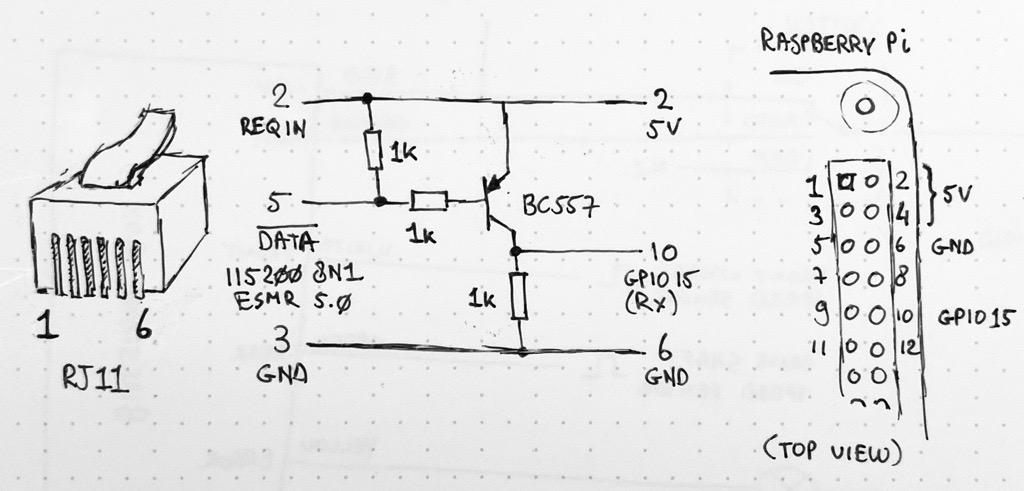 RASPBERRY Pi
2
REQIN
1k
5
DATA
115200 8N1
ESMR 5.0
1k
BC557
1k
3
GND
2
5V
10
GPIO 15
(RX)
6
GND
1 6
RJ11
1 2
3 4
5V
5 6
GND
7 8
9 10
GPIO 15
11 12
(TOP VIEW)